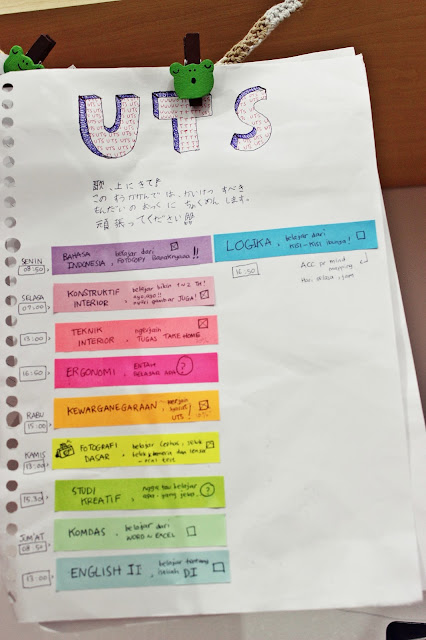 UTS
歌、上にきて!
この すうかかんで は、かいけつ すべき
もんだいの おっく に ちょくめん します。
頑張ってください
SENIN
08:50
BAHASA INDONESIA, belajar dari FOTOCOPY !!
LOGIKA, belajar dari KISI-KISI
16:50
ACC pr mind mapping
Hari Selasa, jam
SELASA
07:00
KONSTRUKTIF INTERIOR, belajar bikin gambar JUGA!
13:00
TEKNIK INTERIOR, ngerjain TUGAS TAKE HOME
16:50
ERGONOMI, ENTAH BELAJAR APA ?
RABU
15:00
KEWARGANEGARAAN, UTS!
KAMIS
13:00
FOTOGRAFI DASAR, belajar
15.30
STUDI KREATIF, ngga tau belajar apa, yang jelas ?
JUM'AT
08:50
KOMDAS, belajar dari WORD & EXCEL
13:00
ENGLISH II, belajar tentang istilah DI